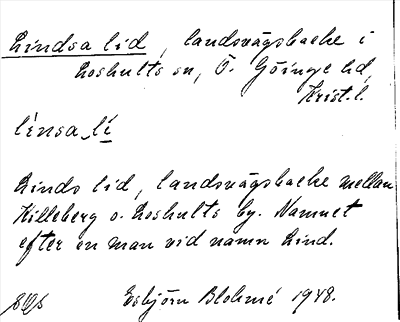 Lindsa lid, landsvägsbacke i
Loshults sn, Ö. Göinge hd,
Krist. l.
línsa_lí
Linds lid, landsvägsbacke mellan
Killeberg o. Loshults by. Namnet
efter en man vid namn Lind.
Esbjörn Blohmé 1948.